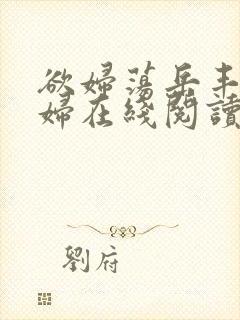 欲婦蕩岳丰
婦在綫閱讀
劉府